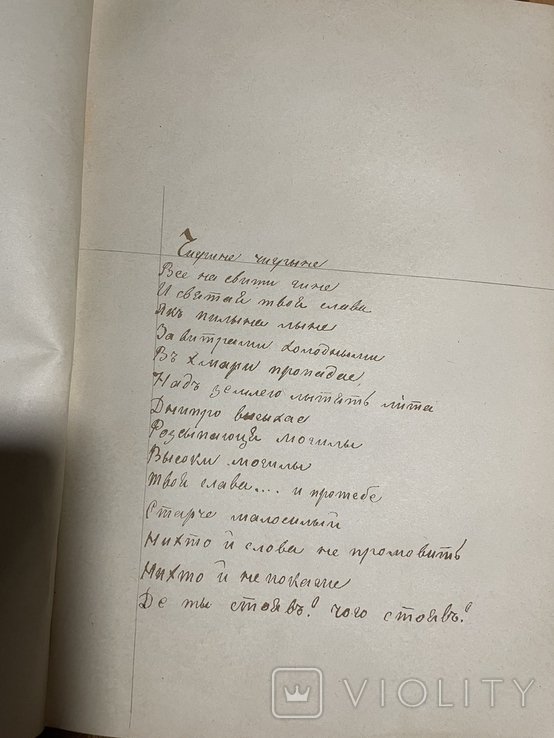 Чигине чигыне
Все на свити гине
И святая твоя слава
Якъ пылына лыне
За витрами холодными
Въ хмари пропадае,
Надъ землею лытять лита
Днипро высыхае
Розсыпающя могилы
Высоки могилы
Твоя слава.... и протебе
Старче малосилый
Нихто й слова не промовить
Нихто й не покаже
Де ты стоявъ? чого стоявъ?
VIOLITY